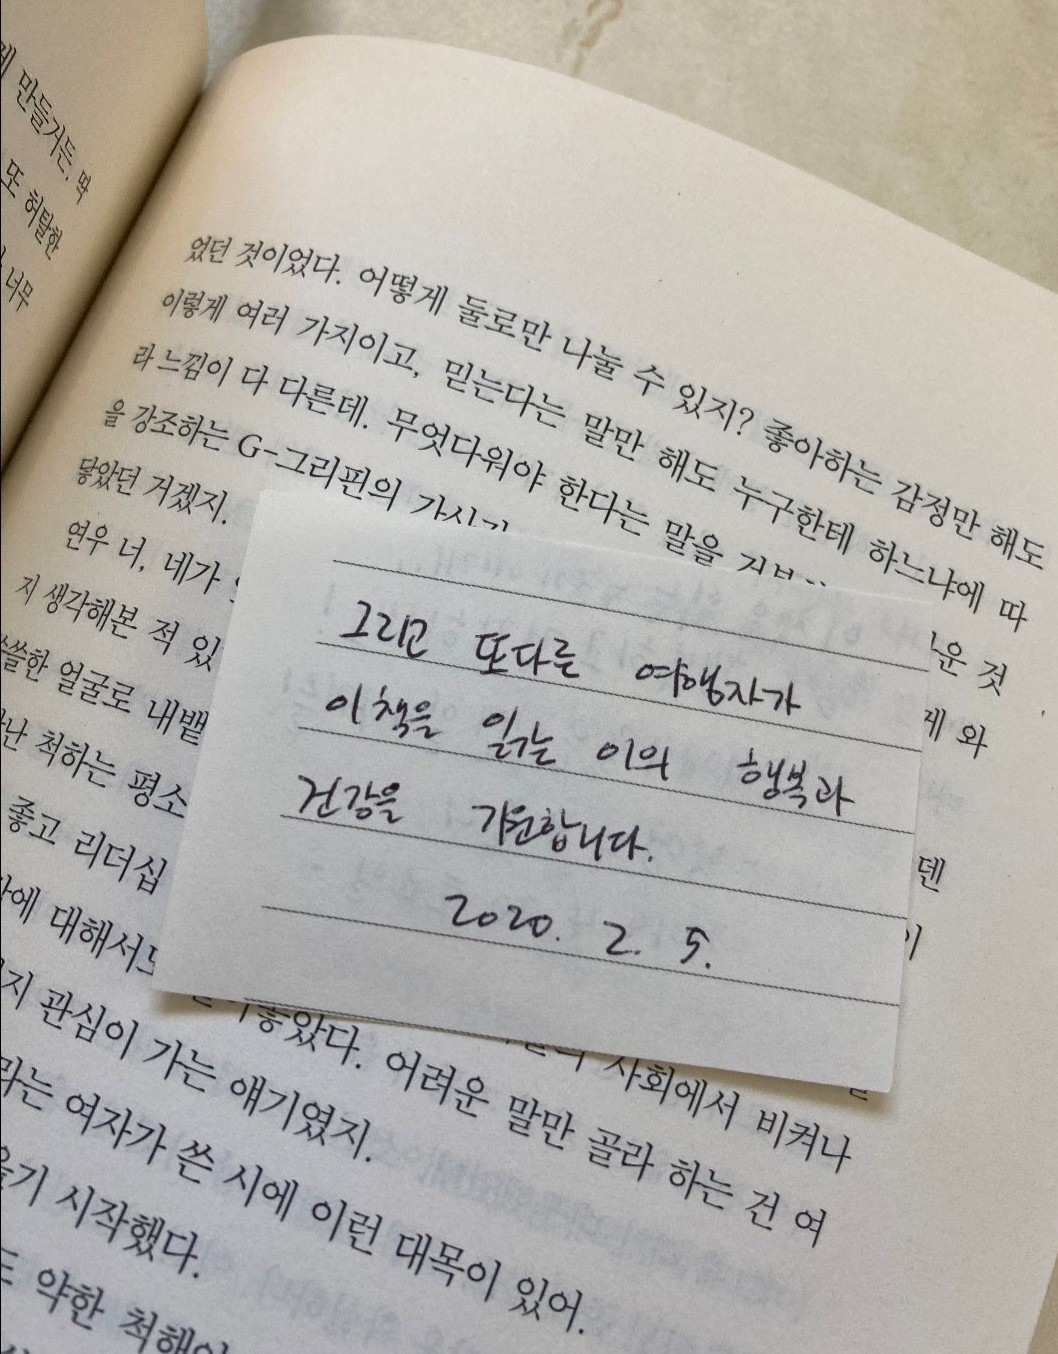 게 만들거든, 딱
또 허탈한
너무
었던 것이었다. 어떻게 둘로만 나눌 수 있지? 좋아하는 감정만 해도
이렇게 여러 가지이고, 믿는다는 말만 해도 누구한테 하느냐에 따
라 느낌이 다 다른데. 무엇다워야 한다는 말을
운 것
을 강조하는 G-그리핀의
게 와
닿았던 거겠지.
연우 너, 네가
지 생각해본 적 있
쓸쓸한 얼굴로 내뱉
난 척하는 평소
덴
좋고 리더십
이
에 대해서도
사회에서 비켜나
지 관심이 가는 얘기였지.
좋았다. 어려운 말만 골라 하는 건 여
라는 여자가 쓴 시에 이런 대목이 있어.
기 시작했다.
도 약한 척해야
그리고 또다른 여행자가
이 책을 읽는 이의 행복과
건강을 기원합니다.
2020. 2. 5.